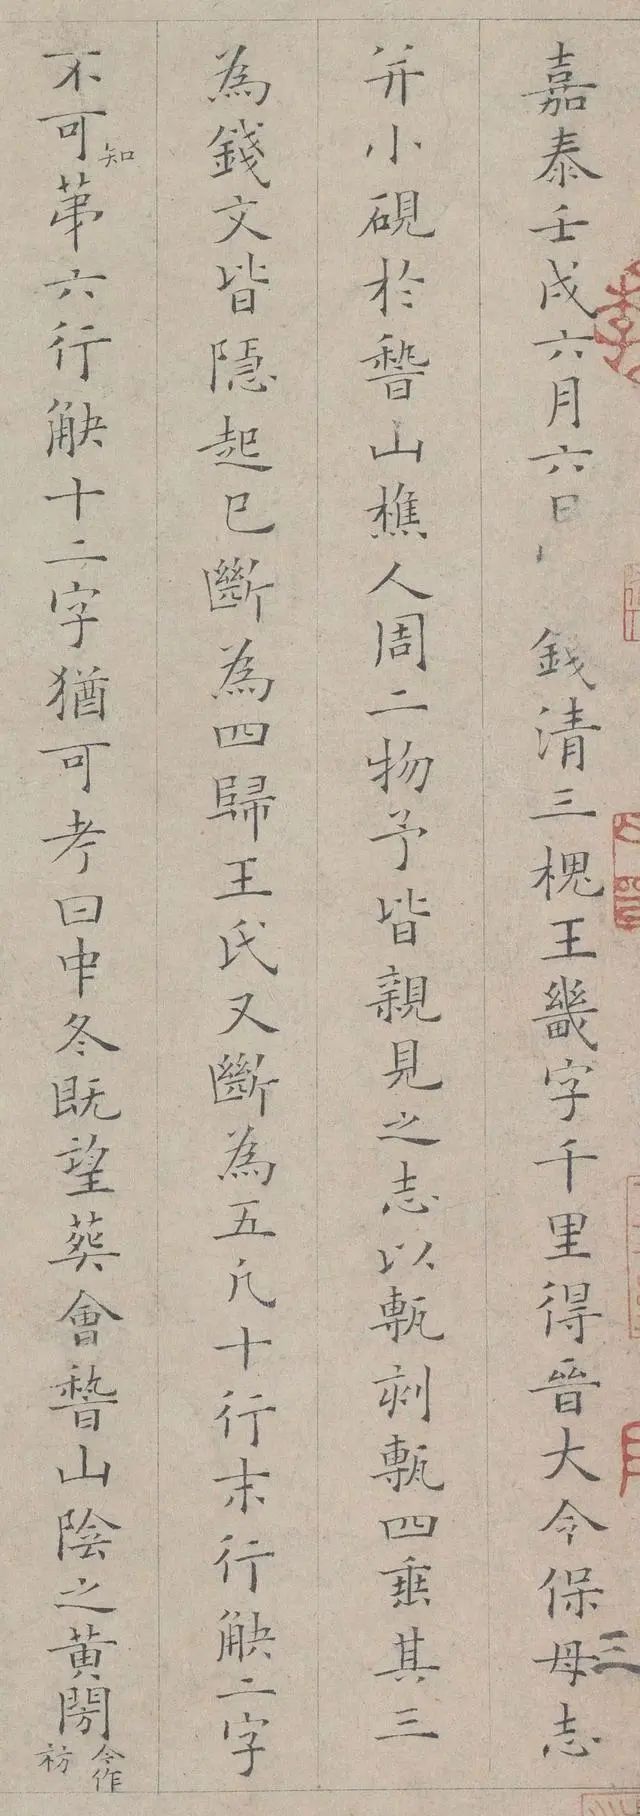 嘉泰壬戌六月六日 錢清三槐王畿字千里得晉大令保母志
并小硯於嵇山樵人周二物予皆親見之志以甎刻甎四垂其三
為錢文皆隱起已斷為四歸王氏又斷為五凡十行末行缺二字
不可知第六行缺十二字猶可考曰中冬既望葬會嵇山陰之黃閍今作祊
三